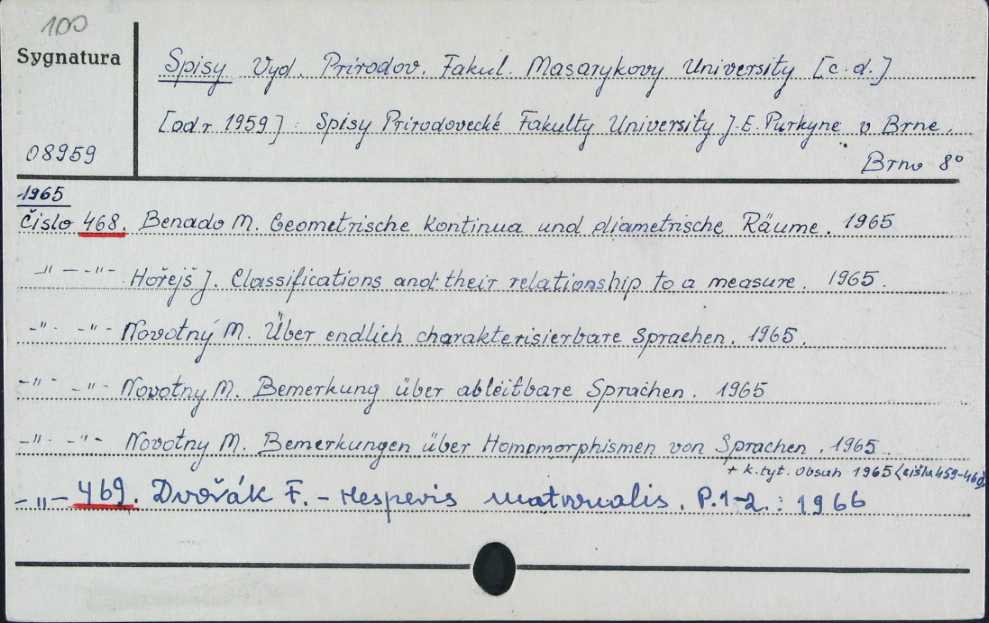 100
Sygnatura
Spisy Vyd. Prirodov. Fakul. Masarykovy University [c.d.]
[od r 1959]: Spisy Prirodovecké Fakulty University J.E. Purkyne v Brne.
08959
Brno 8°
1965
Čislo 468. Benado M. Geometrische Kontinua und diametrische Räume. 1965
-"- -"- Hořejš J. Classifications and their relationship to a measure. 1965.
-"- -"- Novotný M. Über endlich charakterisierbare Sprachen. 1965.
-"- -"- Novotny M. Bemerkung über ableitbare Sprachen. 1965
-"- -"- Novotny M. Bemerkungen über Homomorphismen von Sprachen. 1965
+ k.tyt. Obsah 1965 (čisla 459-468)
-"- 469. Dvořák F. - Hesperis matronalis. P.1-2.: 1966